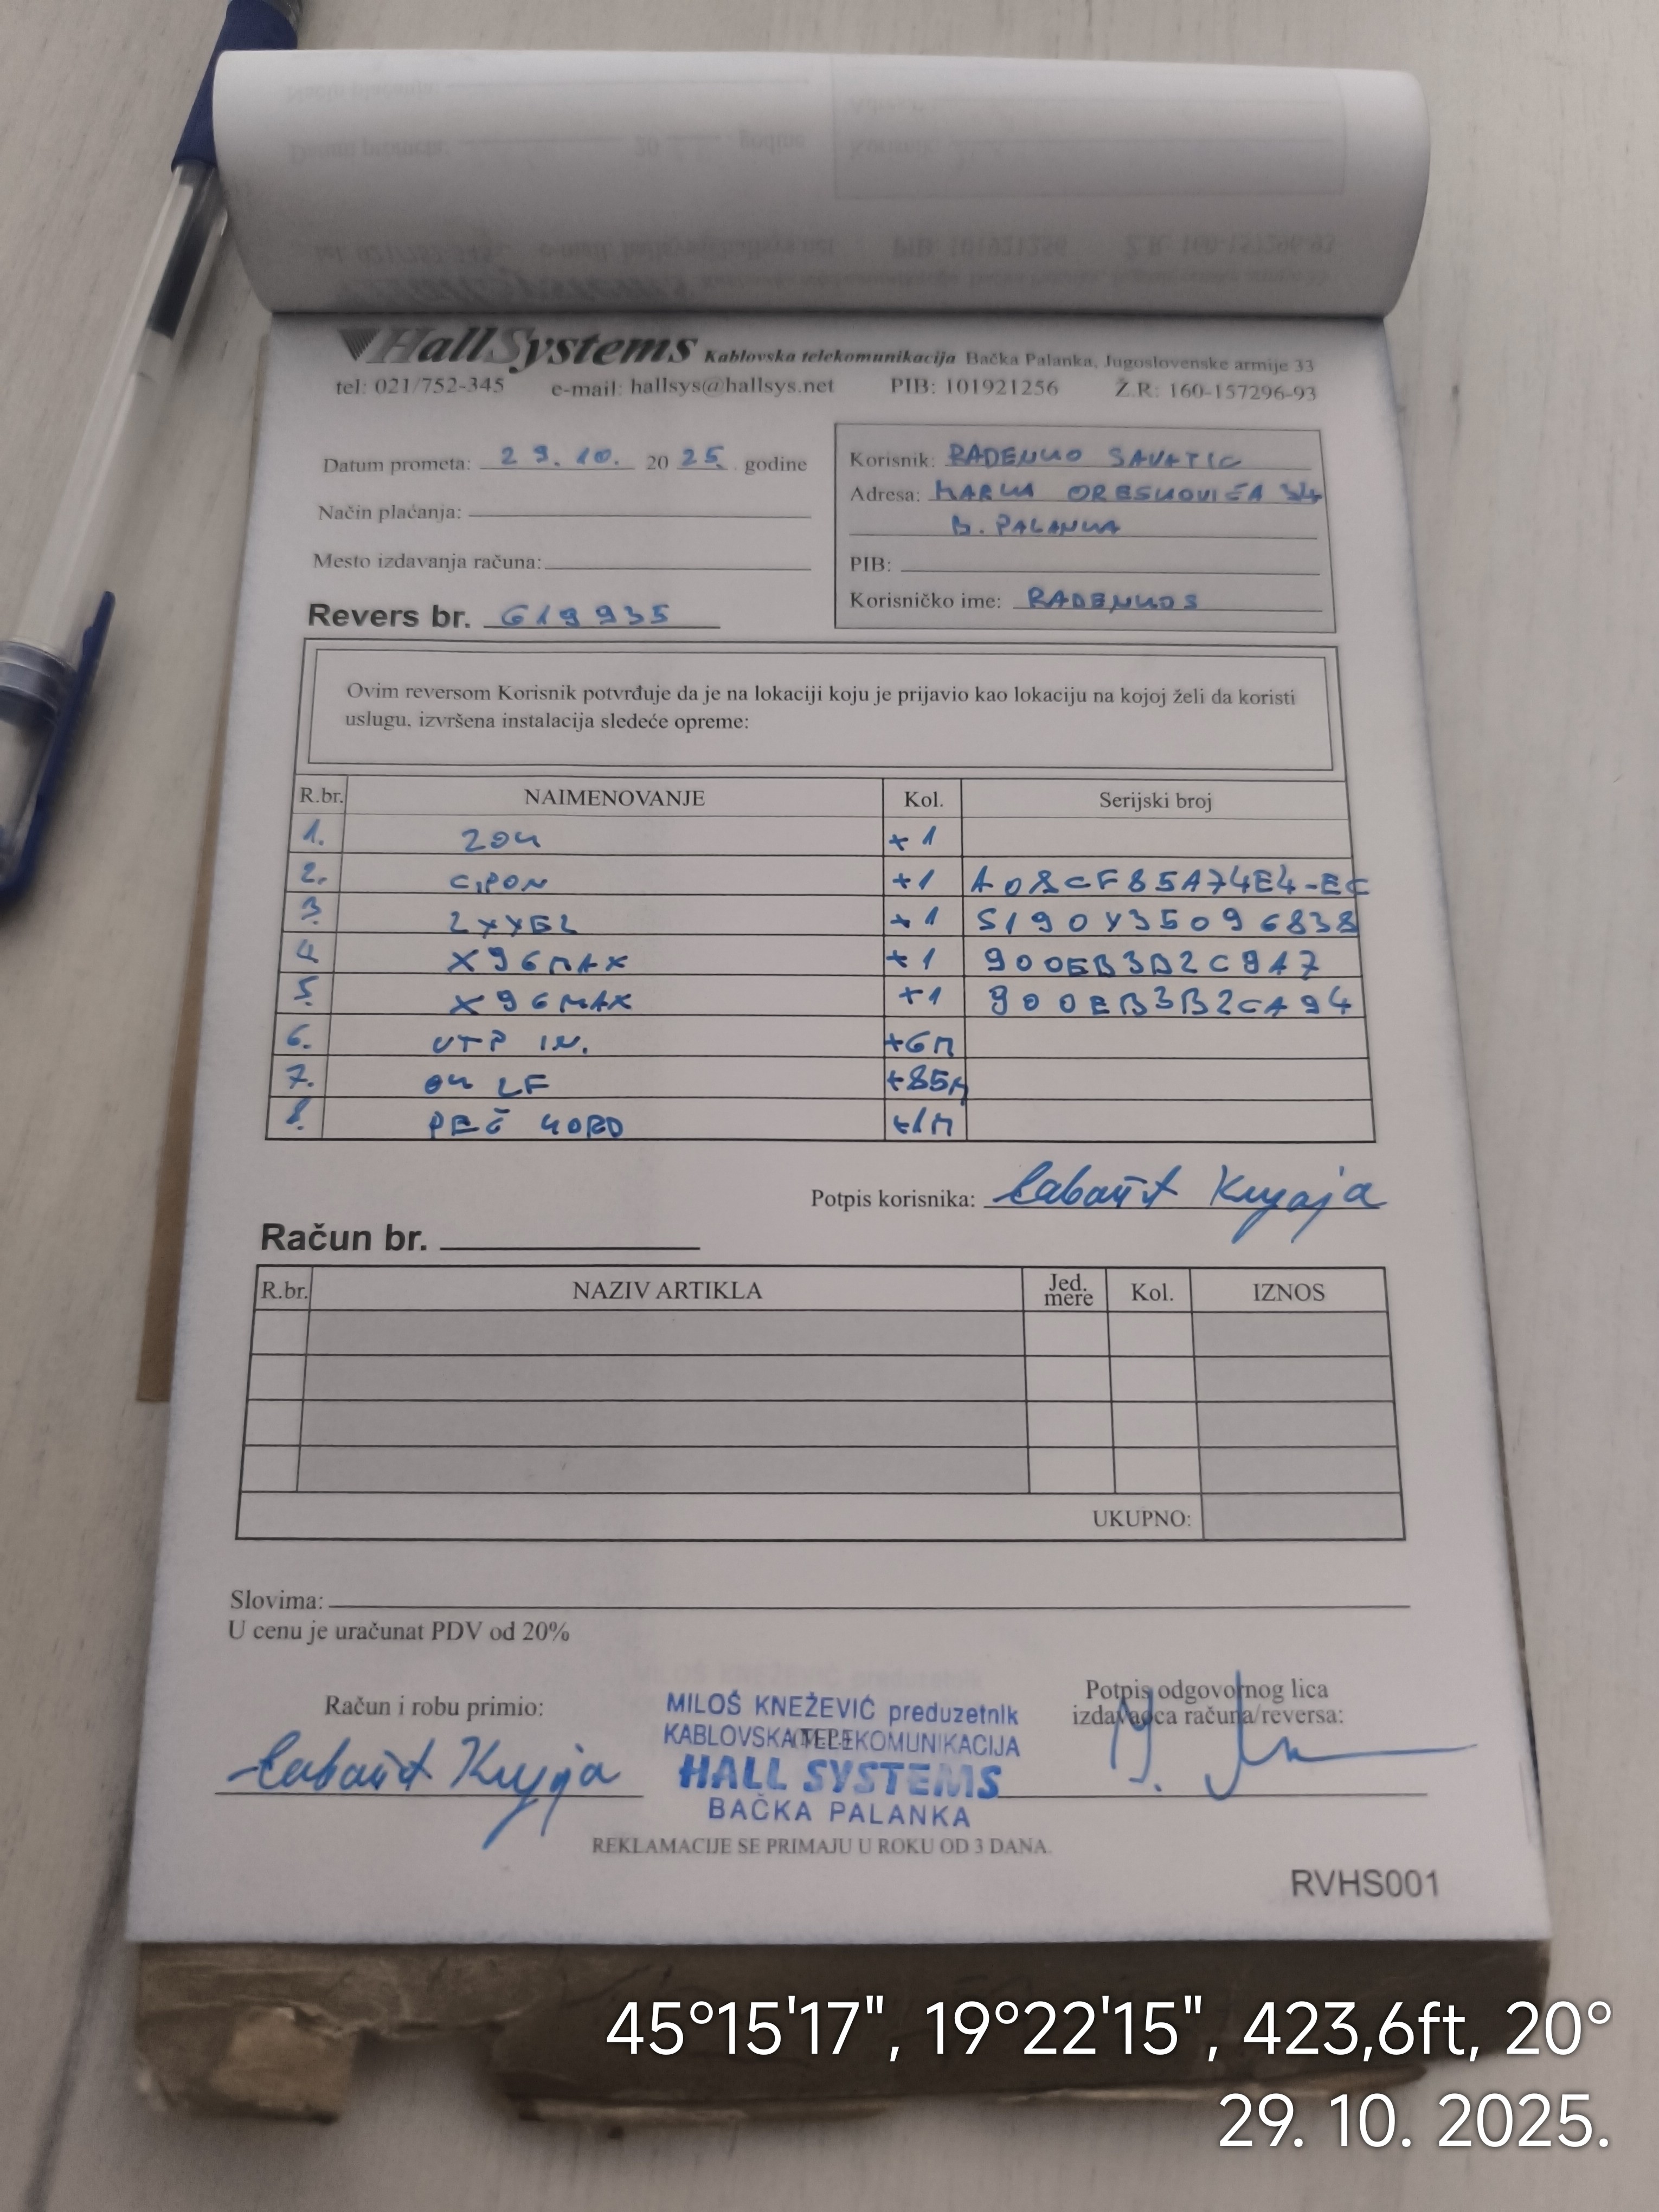 HallSystems Kablovska telekomunikacija Bačka Palanka, Jugoslovenske armije 33
tel: 021/752-345 e-mail: hallsys@hallsys.net PIB: 101921256 Ž.R: 160-157296-93
Datum prometa: 29.10. 2025. godine
Način plaćanja:
Mesto izdavanja računa:
Revers br. 619935
Korisnik: RADENKO SAVATIC
Adresa: MARKA OREŠKOVIĆA 34
B. PALANKA
PIB:
Korisničko ime: RADENKOS
Ovim reversom Korisnik potvrđuje da je na lokaciji koju je prijavio kao lokaciju na kojoj želi da koristi
uslugu, izvršena instalacija sledeće opreme:
R.br. NAIMENOVANJE Kol. Serijski broj
1. ZOK +1
2. GPON +1 A08CF85A74E4-EC
3. ZYXEL +1 S190Y35096838
4. X96MAX +1 900EB3B2C9A7
5. X96MAX +1 900EB3B2CA94
6. UTP IN. +6M
7. OK LF +85M
8. PEČ KORD +1M
Potpis korisnika:
Račun br.
R.br. NAZIV ARTIKLA Jed. mere Kol. IZNOS
UKUPNO:
Slovima:
U cenu je uračunat PDV od 20%
Račun i robu primio:
MILOŠ KNEŽEVIĆ preduzetnik
KABLOVSKA TELEKOMUNIKACIJA
HALL SYSTEMS
BAČKA PALANKA
Potpis odgovornog lica
izdavaoca računa/reversa:
REKLAMACIJE SE PRIMAJU U ROKU OD 3 DANA.
RVHS001
45°15'17", 19°22'15", 423,6ft, 20°
29. 10. 2025.